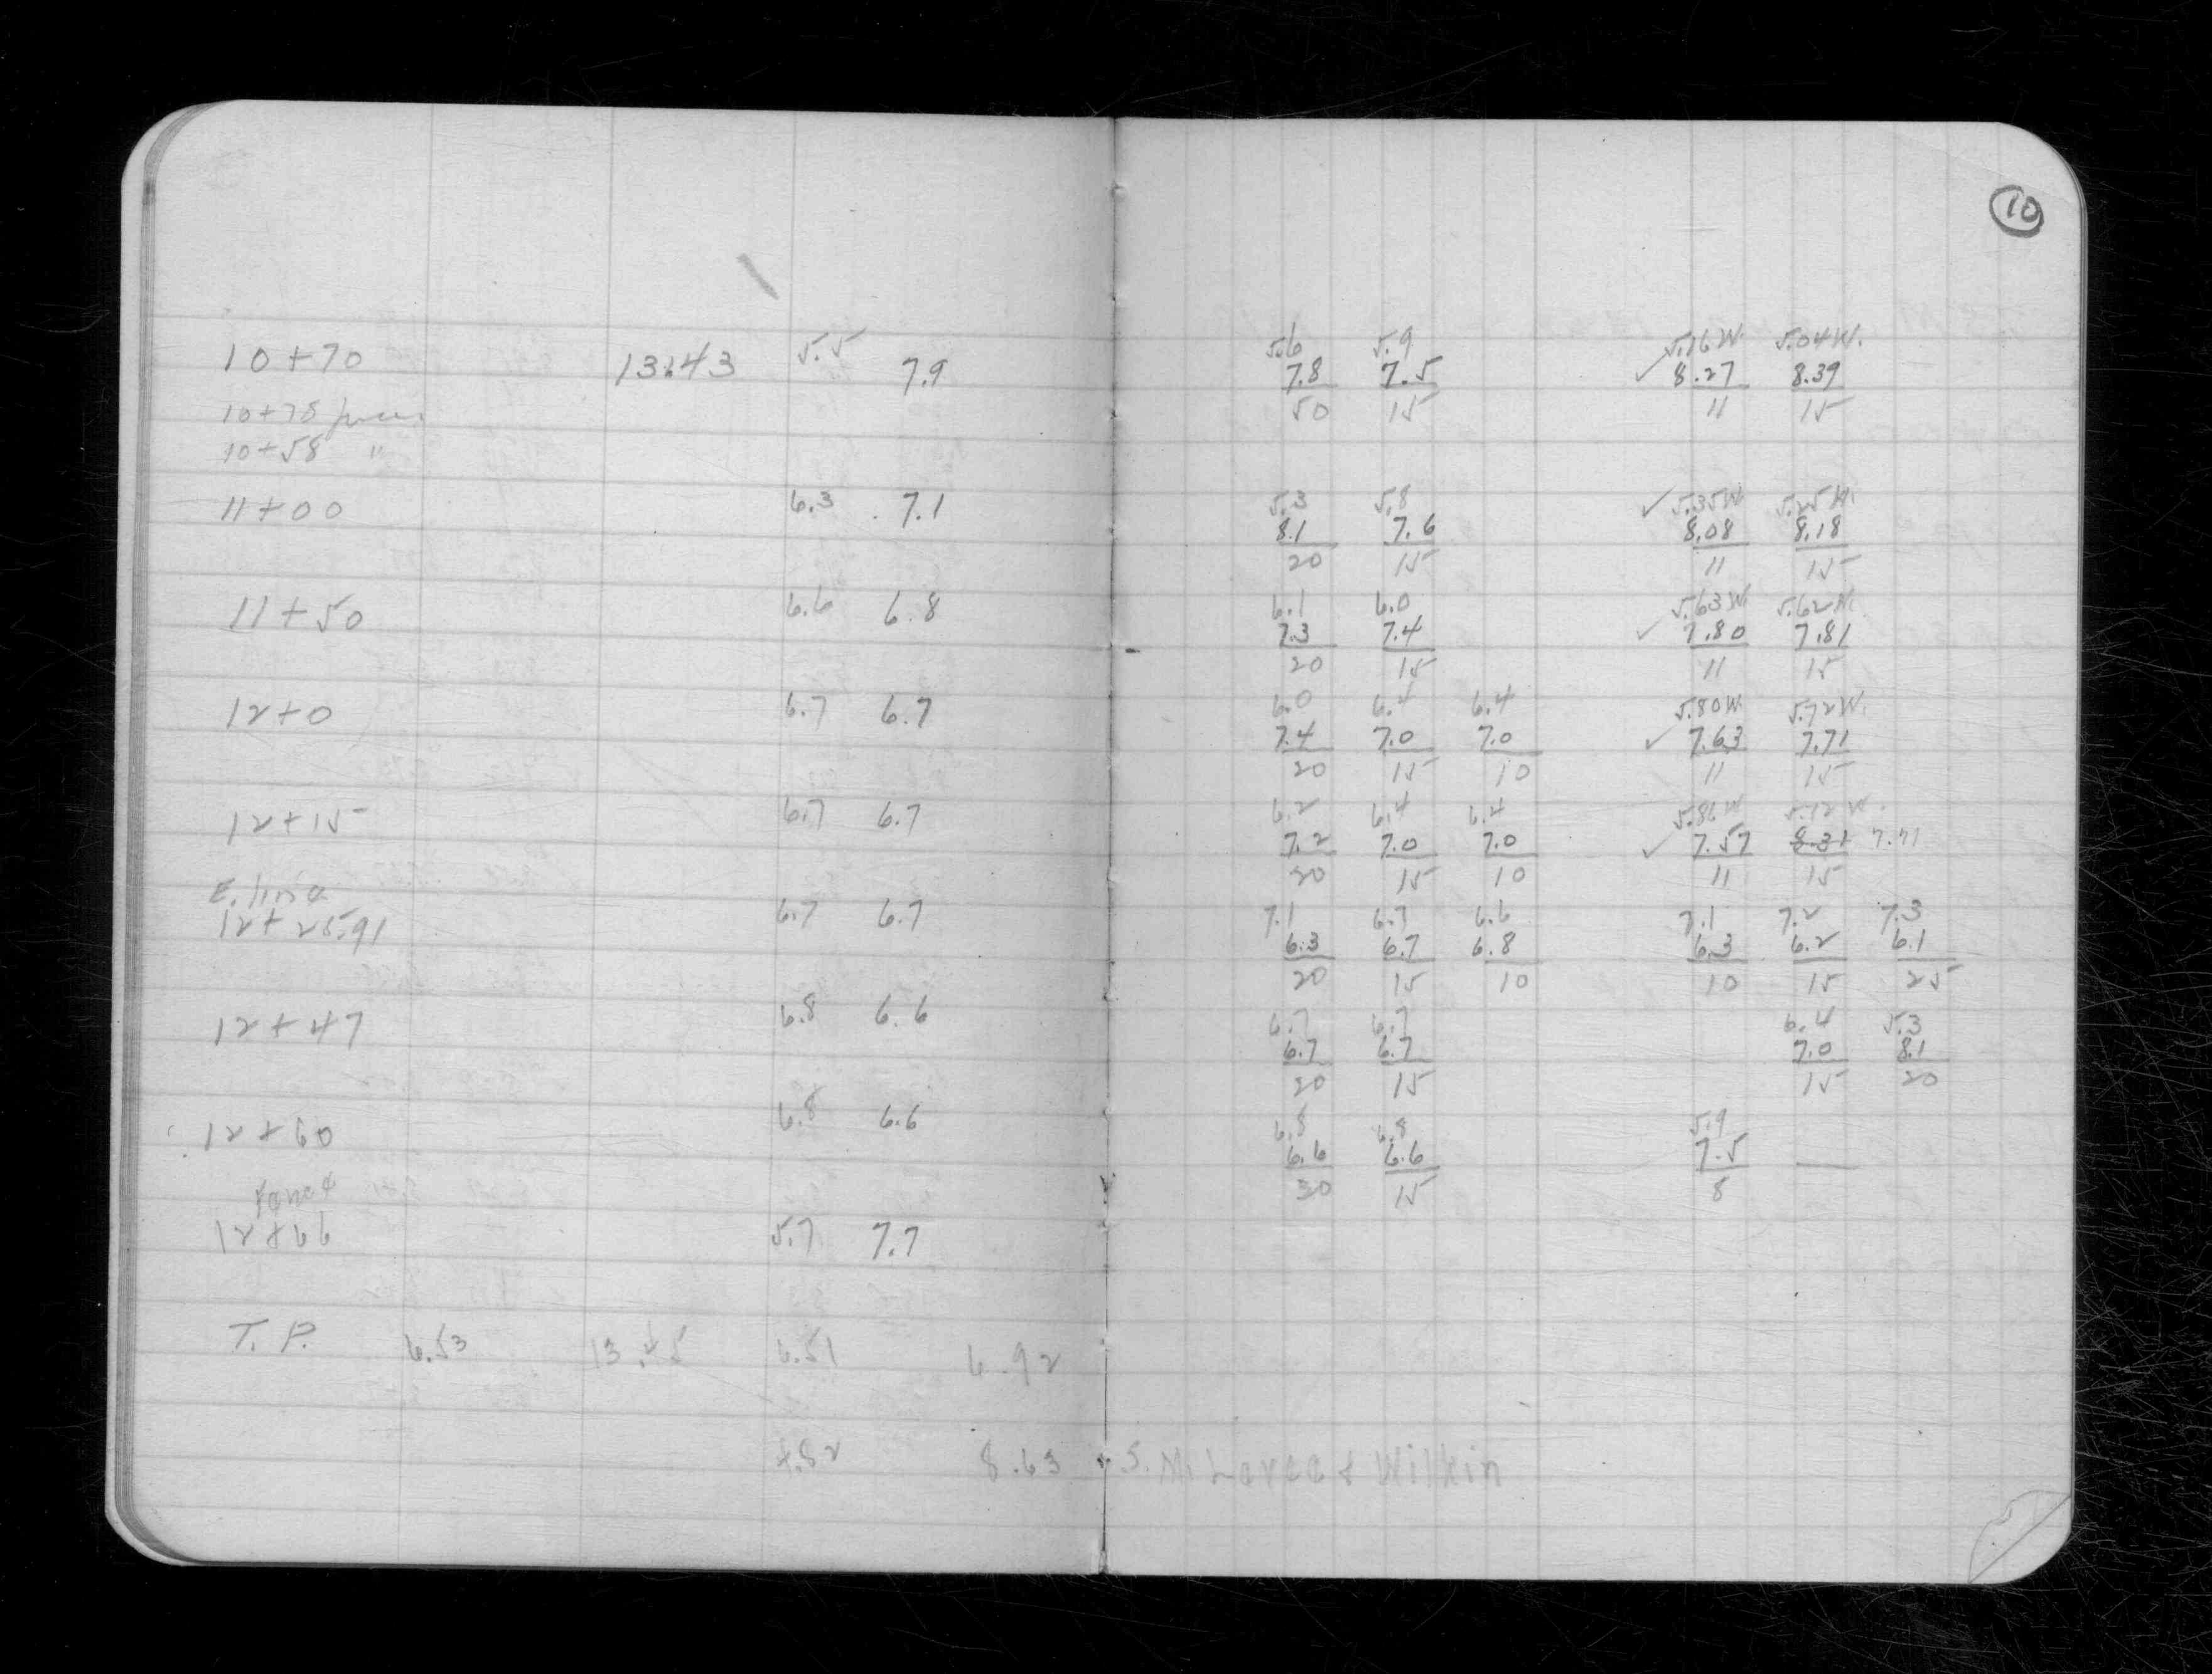 10
5.6 5.9 5.16W. 5.04W.
10+70 13.43 5.5 7.9 7.8 7.5 ✓ 8.27 8.39
10+78 50 15 11 15
10+58 "
5.3 5.8 ✓ 5.35W. 5.25W.
11+00 6.3 7.1 8.1 7.6 8.08 8.18
20 15 11 15
6.1 6.0 5.63W. 5.62W.
11+50 6.6 6.8 7.3 7.4 ✓ 7.80 7.81
20 15 11 15
6.0 6.4 6.4 5.80W. 5.72W.
12+0 6.7 6.7 7.4 7.0 7.0 ✓ 7.63 7.71
20 15 10 11 15
6.2 6.4 6.4 5.86W 5.12W.
12+15 6.7 6.7 7.2 7.0 7.0 ✓ 7.57 8.31 7.71
20 15 10 11 15
E. line 7.1 6.7 6.6 7.1 7.2 7.3
12+25.91 6.7 6.7 6.3 6.7 6.8 6.3 6.2 6.1
20 15 10 10 15 25
6.7 6.7 6.4 5.3
12+47 6.8 6.6 6.7 6.7 7.0 8.1
20 15 15 20
6.8 6.8 5.9
12+60 6.8 6.6 6.6 6.6 7.5
20 15 8
Fence
12+66 5.7 7.7
T.P. 6.53 13.45 6.51 6.92
4.82 8.63 S. & Wilkin